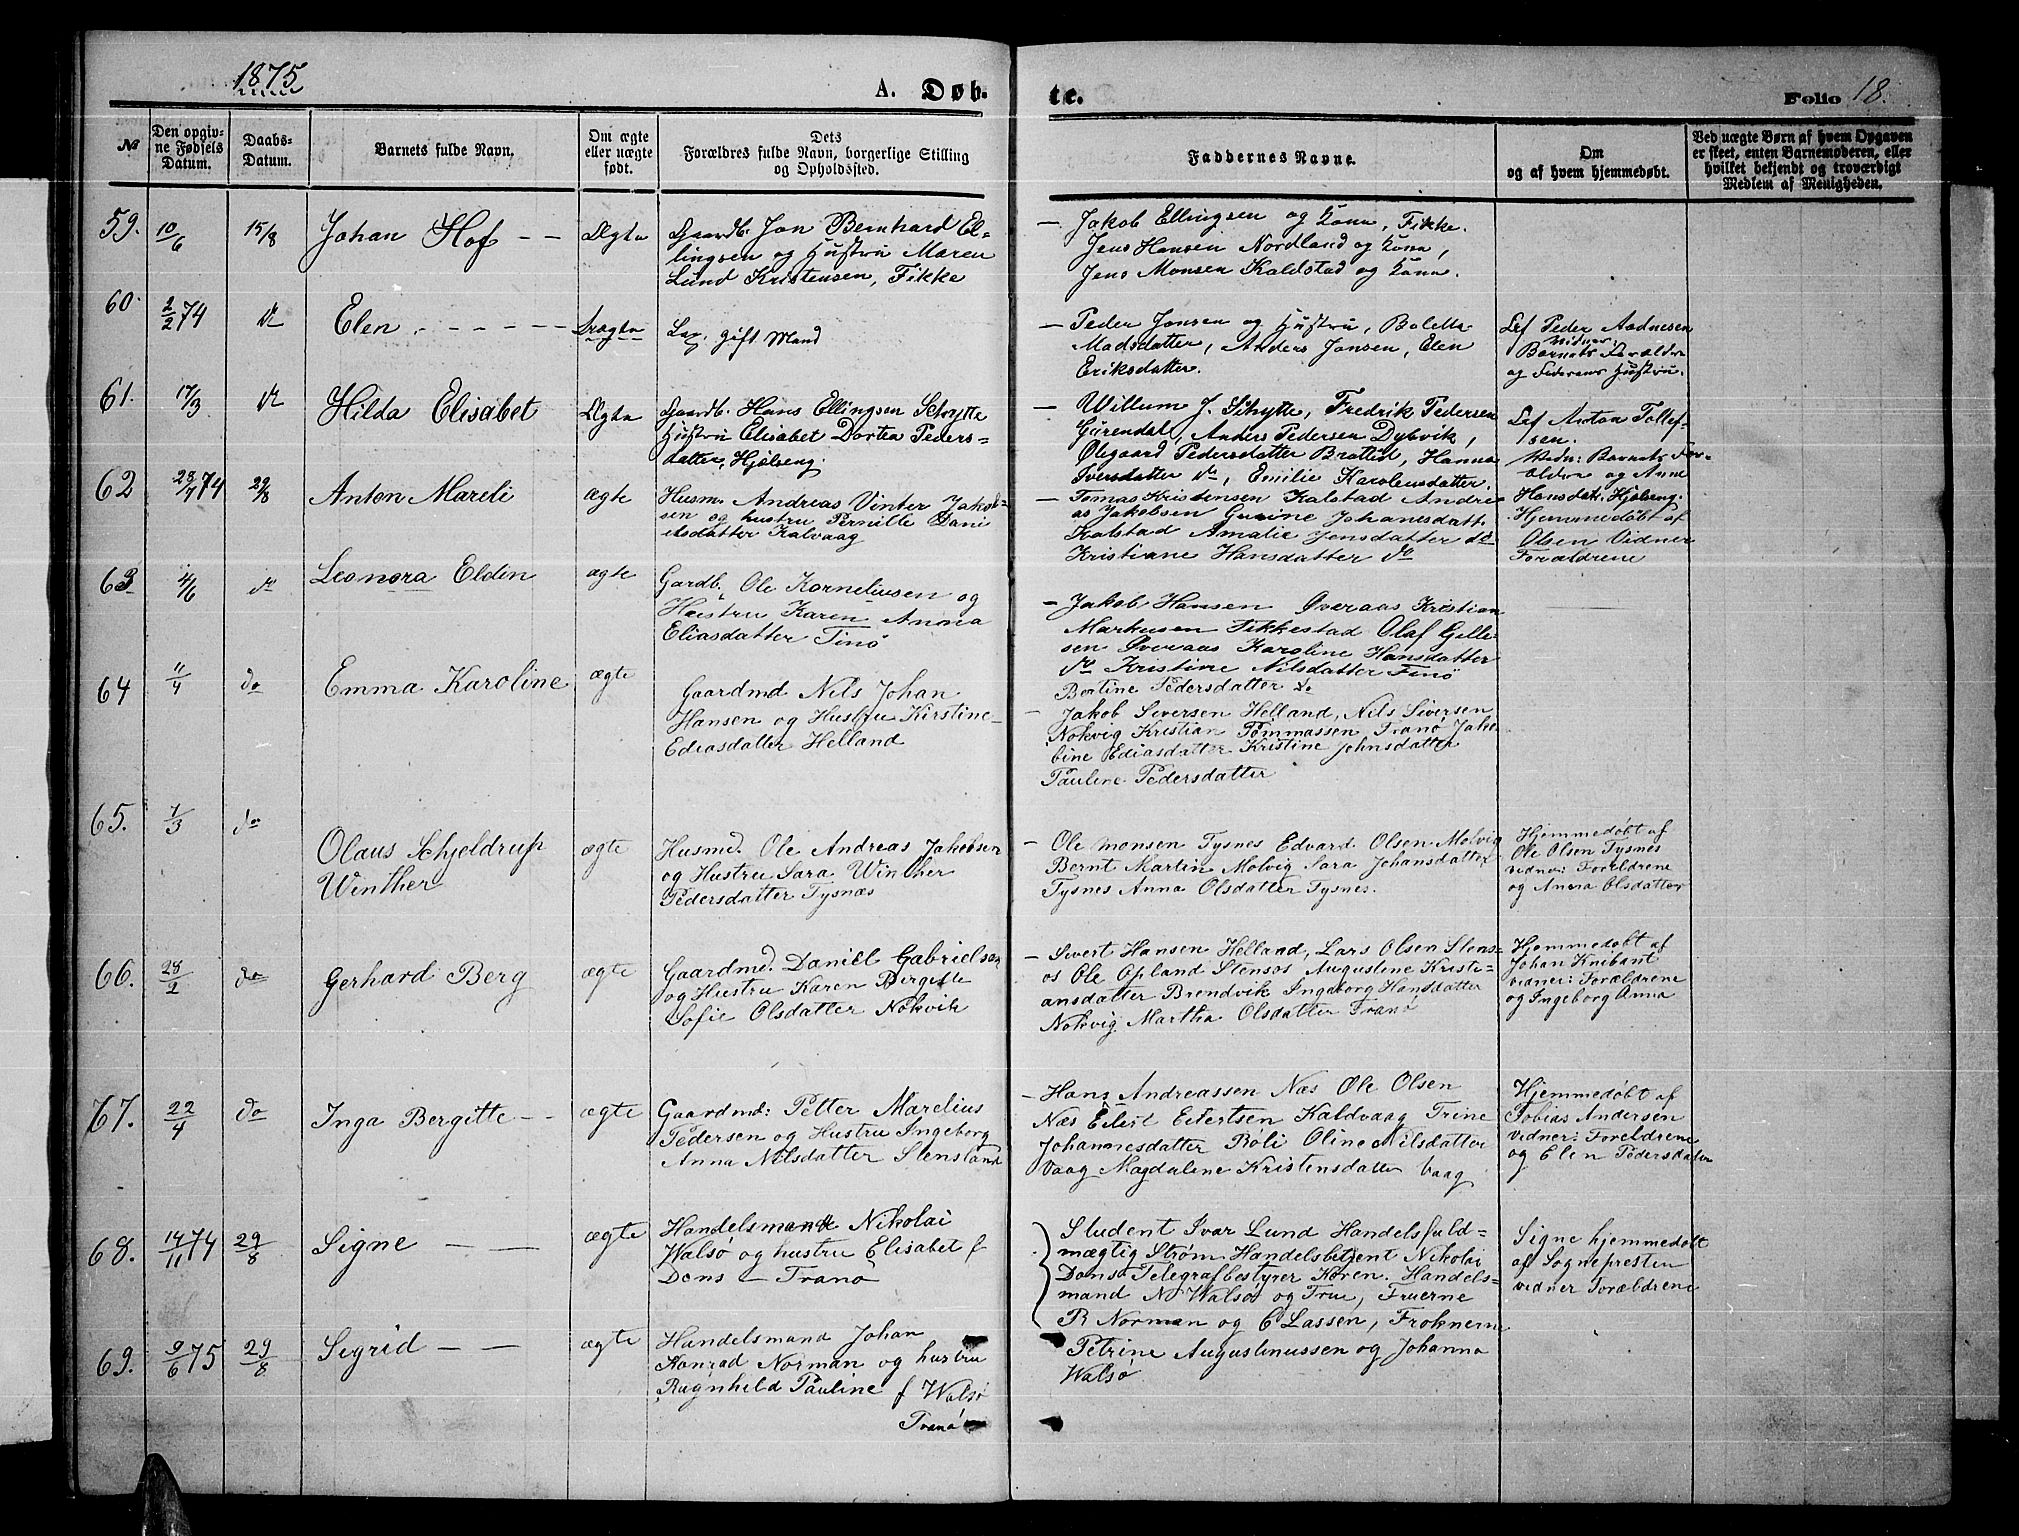 1875
A. Døb-
te.
Folio 18.
№
Den opgiv-
ne Fødsels
Datum.
Daabs-
Datum.
Barnets fulde Navn.
Om ægte
eller uægte
født.
Dets
Forældres fulde Navn, borgerlige Stilling
og Opholdssted.
Faddernes Navne.
Om
og af hvem hjemmedøbt.
Ved uægte Børn af hvem Opgaven
er skeet, enten Barnemoderen, eller
hvilket bekjendt og troværdigt
Medlem af Menigheden.
59.
10/6
15/8
Johan Hof
Ægte
Gaardb. Jon Bernhard El-
lingsen og Hustru Maren
Lund Kristensen, Fikke
Jakob Ellingsen og kone, Fikke.
Jens Hansen Nordland og kone,
Jens Monsen Kaldstad og kone.
60.
2/2 74
do
Elen
Uægte
gift Mand
Peder Jonsen og Hustru, Bolette
Madsdatter, Anders Jonsen, Elen
Eriksdatter.
Lef Peder Andnesen
Vidner:
Barnets Forældre
og Hustru.
61.
17/3
do
Hilda Elisabet
Ægte
Gaardb. Hans Ellingsen Schytte
Hustru Elisabet Dortea Peders-
datter, Hjelseng.
Willum J. Schytte, Fredrik Pedersen
Gurendal, Anders Pedersen Dybvik,
Olegaard Pedersdatter Brattid, Hanna
Iversdatter do, Emilie Karolensdatter.
Lef Anton Tollef-
sen.
Vidn: Barnets For-
ældre og Ane
Hansdatr. Hjelseng.
62
28/7 74
29/8
Anton Mareli
ægte
Husm. Andreas Vinter Jakob-
sen og hustru Pernille Dani
elsdatter Kalvaag
Tomas Kristensen Kalstad Andre
as Jakobsen Gurine Johanesdatt.
Kalstad Amalie Jensdatter do
Kristiane Hansdatter do
Hjemmedøbt af
Olsen Vidner
Forældrene
63
4/6
do
Leonora Eldin
ægte
Gardb. Ole Korneliusen og
Hustru Karen Anna
Eliasdatter Finø
Jakob Hansen Øveraas Kristian
Markusen Fikkestad Olaf Gille-
sen Øveraas Karoline Hansdatter
do Kristine Nilsdatter Finø
Bertine Pedersdatter do
64
11/4
do
Emma Karoline
ægte
Gaardmd Nils Johan
Hansen og Hustru Kirstine
Ediasdatter Helland
Jakob Siversen Helland, Nils Siversen
Nokvig Kristian Tommassen Tranø Jako
bine Ediasdatter Kristine Johnsdatter
Pauline Pedersdatter
65.
7/3
do
Olaus Schjeldrup
Winther
ægte
Husmd. Ole Andreas Jakobsen
og Hustru Sara Winther
Pedersdatter Tysnæs
Ole Monsen Tysnes Edvard Olsen Molvig
Bernt Martin Molvig Sara Johansdatter
Tysnes Anna Olsdatter Tysnes.
Hjemmedøbt af
Ole Olsen Tysnes
vidner: Forældrene
og Anna Olsdatter
66.
28/2
do
Gerhard Berg
ægte
Gaardmd. Daniel Gabrielsen
og Hustru Karen Bergitte
Sofie Olsdatter Nokvik
Sivert Hansen Helland, Lars Olsen Stens-
os Ole Opland Stensos Augustene Kristi-
ansdatter Brendvik Ingeborg Hansdatter
Nokvig Martha Olsdatter Tranø
Hjemmedøbt af
Johan Knibant
vidner: Forældrene
og Ingeborg Anna
67.
22/4
do
Inga Bergitte
ægte
Gaardmd: Petter Marelius
Pedersen og Hustru Ingeborg
Anna Nilsdatter Stensland
Hans Andreassen Næs Ole Olsen
Næs Eilert Eilertsen Kaldvaag Trine
Johannesdatter Røli Oline Nilsdatter
Vaag Magdalene Kristensdatter Vaag
Hjemmedøbt af
Tobias Andersen
vidner: Forældrene
og Elen Pedersdatter
68.
14/11 74
29/8
Signe
ægte
Handelsmand Nikolai
Walsø og hustru Elisabet f
Dons – Tranø
Student Ivar Lund Handelsfuld-
mægtig Strøm Handelsbetjent Nikolai
Dons Telegrafbestyrer Koren. Handels-
mand N Walsøe og Frue, Fruerne
R Norman og C Lassen, Frøknerne
Petrine Augustinussen og Johanna
Walsø
Signe hjemmedøbt
af Sognepresten
vidner Forældrene
69.
9/6 75
29/8
Sigrid
ægte
Handelsmand Johan
Konrad Norman og hustru
Ragnhild Pauline f Walsø
Tranø